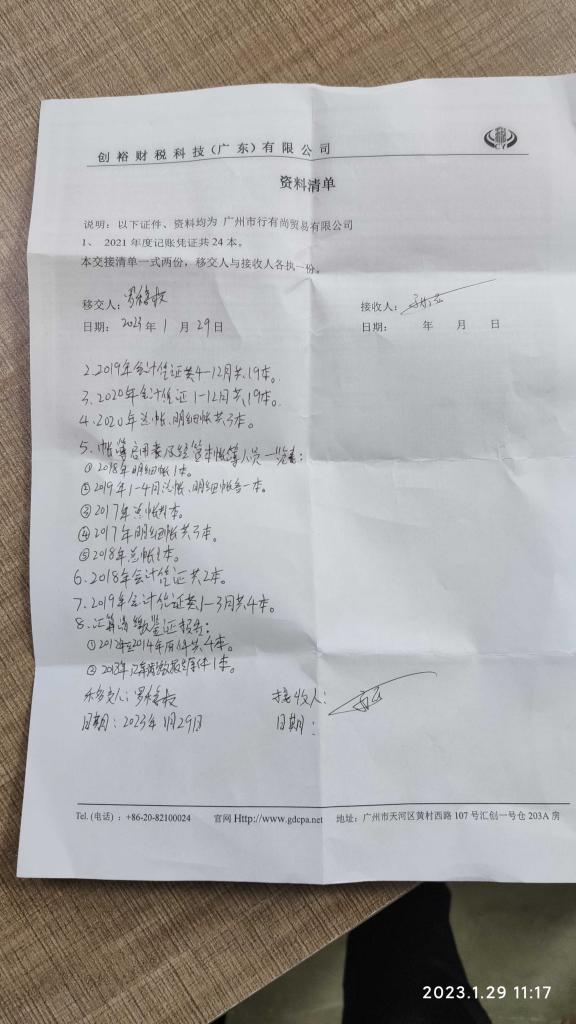 创裕财税科技(广东)有限公司
CY
资料清单
说明：以下证件、资料均为 广州市行有尚贸易有限公司
1、 2021 年度记账凭证共 24 本。
本交接清单一式两份，移交人与接收人各执一份。
移交人： 接收人：
日期： 2023 年 1 月 29 日 日期： 年 月 日
2. 2019年会计凭证共4-12月共19本。
3. 2020年会计凭证1-12月共19本。
4. 2020年总帐、明细帐共3本。
5. 帐簿启用表及经管本帐簿人员一览表：
① 2018年明细帐1本。
② 2019年1-4月总帐、明细帐各一本。
③ 2017年总帐1本。
④ 2017年明细帐共3本。
⑤ 2018年总帐1本。
6. 2018年会计凭证共2本。
7. 2019年会计凭证共1-3月共4本。
8. 汇算清缴鉴证报告：
① 2012年至2014年原件共4本。
② 1本。
移交人： 接收人：
日期：2023年1月29日 日期：
Tel. (电话) ：+86-20-82100024 官网 Http://www.gdcpa.net 地址：广州市天河区黄村西路 107 号汇创一号仓 203A 房
2023.1.29 11:17